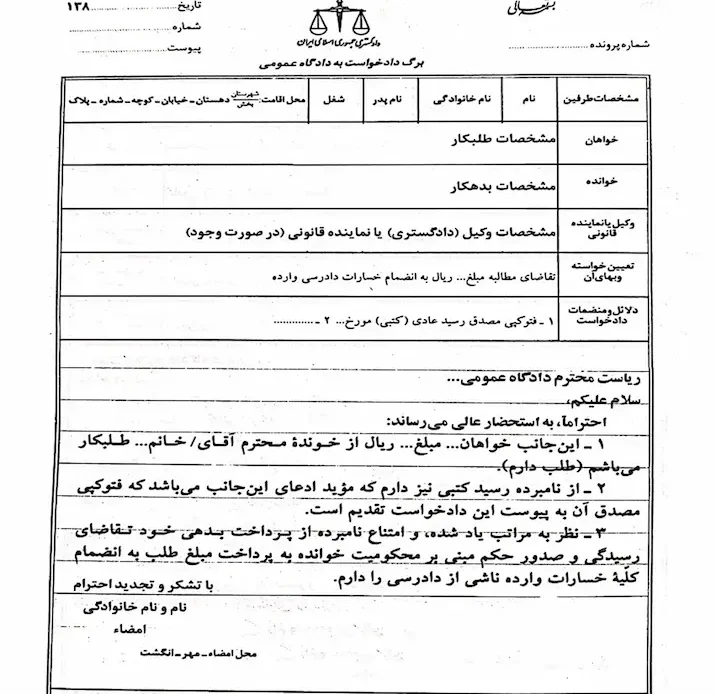 بسمه تعالی
تاریخ ............... ۱۳۸
شماره ...............
پیوست ...............
شماره پرونده ...............
دادگستری جمهوری اسلامی ایران
برگ دادخواست به دادگاه عمومی
مشخصات طرفین نام نام خانوادگی نام پدر شغل محل اقامت: شهرستان بخش دهستان ـ خیابان ـ کوچه ـ شماره ـ پلاک
خواهان مشخصات طلبکار
خوانده مشخصات بدهکار
وکیل یا نماینده قانونی مشخصات وکیل (دادگستری) یا نماینده قانونی (در صورت وجود)
تعیین خواسته وبهای آن تقاضای مطالبه مبلغ... ریال به انضمام خسارات دادرسی وارده
دلائل ومنضمات دادخواست ۱ ـ فتوکپی مصدق رسید عادی (کتبی) مورخ... ۲ ـ .............
ریاست محترم دادگاه عمومی...
سلام علیکم،
احتراماً، به استحضار عالی می‌رساند:
۱ ـ این‌جانب خواهان... مبلغ... ریال از خوندۀ محترم آقای/ خانم... طلبکار
می‌باشم (طلب دارم).
۲ ـ از نامبرده رسید کتبی نیز دارم که مؤید ادعای این‌جانب می‌باشد که فتوکپی
مصدق آن به پیوست این دادخواست تقدیم است.
۳ ـ نظر به مراتب یاد شده، و امتناع نامبرده از پرداخت بدهی خود تقاضای
رسیدگی و صدور حکم مبنی بر محکومیت خوانده به پرداخت مبلغ طلب به انضمام
کلّیۀ خسارات وارده ناشی از دادرسی را دارم.
با تشکر و تجدید احترام
نام و نام خانوادگی
امضاء
محل امضاء ـ مهر ـ انگشت